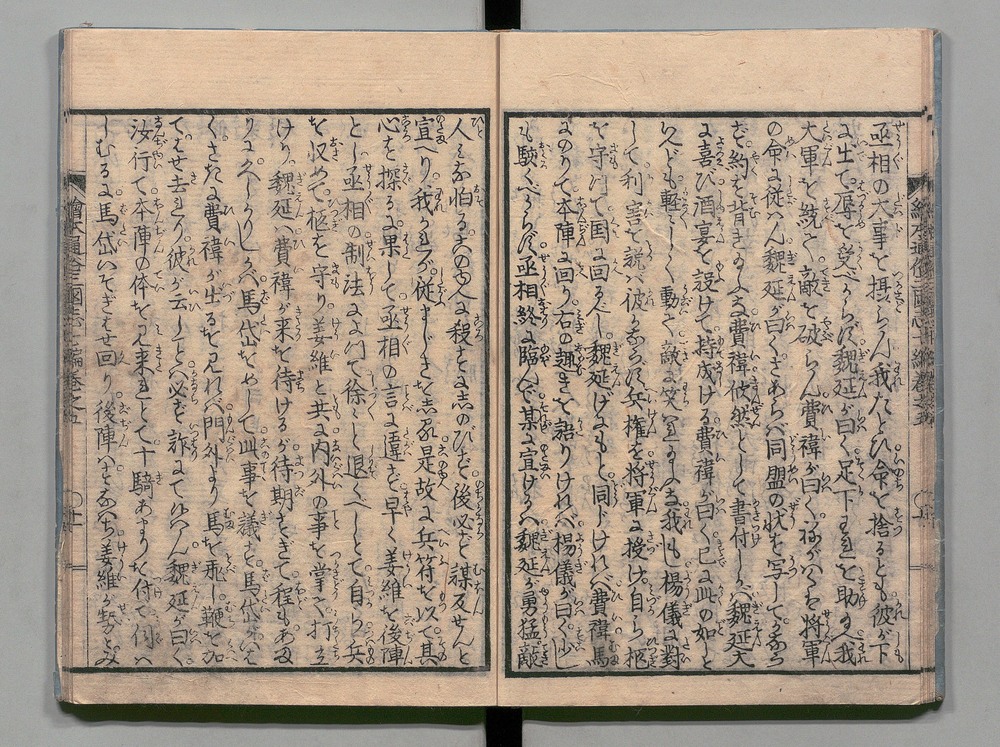 丞相の大事を摂らん我たとひ命を捨るとも彼が下
に出て辱を受べからず魏延が曰く足下われを助け人我
大軍を統て敵を破らん費禕が曰く禄がはくは将軍
の命に従はん魏延が曰くさあらバ同盟の状を写してたがひ
に約を背きたまふな費禕欣然として書付しかバ魏延大
に喜び酒宴を設けて持成ける費禕が曰く已に此の如しと
いへども軽々しく動て敵に笑はれたまふな我も楊儀に対
して利害を説バ彼かならず兵権を将軍に授け自ら柩
を守りて国に回るべし魏延げにもと同じけれバ費禕馬
にのりて本陣に回り右の趣きを語りけれバ楊儀が曰く少し
も驚くべからず丞相終に臨んで某に宣ける ハ魏延が勇猛敵
人みな怕るゝのゆへに殺さず志のびて後必ず謀反せんと
宣へり我われが従まじきを志る是故に兵符を以て其
心を探るに果して丞相の言に違ず早く姜維を後陣
とし丞相の制法によりて徐々と退くべしとて自ら兵
を収めて柩を守り姜維と共に内外の事を掌て打立
けり魏延ハ費禕が来を待けるが待期すぎて程もあま
りに久しかりしかバ馬岱をめして此事を議す馬岱がいはく
くさきに費禕が出るを見れバ門外より馬を飛し鞭を加
てはせ去れり彼が云しことハ必ず詐にてゆへん魏延が曰く
汝行て本陣の体を見来れとて十騎あまりを付て伺ハ
しむるに馬岱いそぎはせ回り後陣ハすなハち姜維が勢のみ